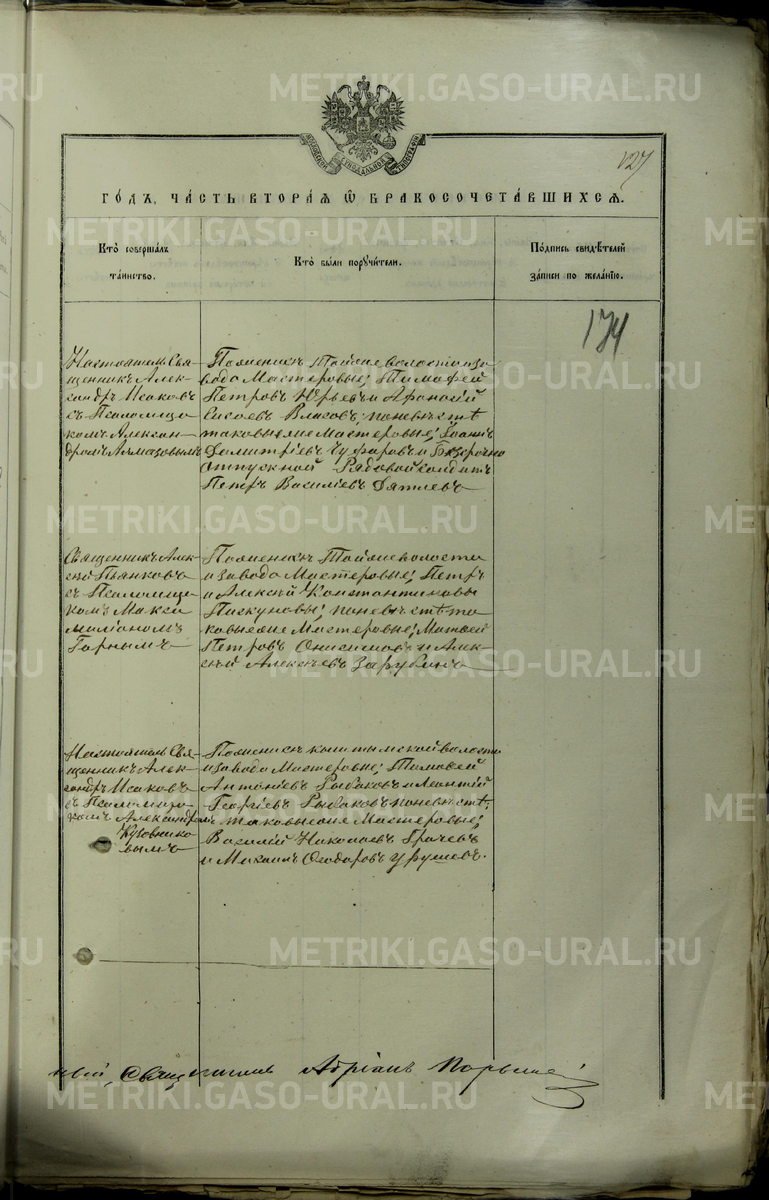 127
Годъ, часть вторая ѿ бракосочетавшихся.
Кто совершалъ
таинство.
Кто были поручители.
Подпись свидѣтелей
записи по желанію.
174
Настоятель Свя-
щенникъ Алек-
сандръ Исаковъ
съ Псаломщи-
комъ Алексан-
дромъ Алмазовымъ
По женихѣ той же волости и за
вода Мастеровые; Тимофей
Петровъ Юрьевъ и Афанасій
Сысоевъ Власовъ; по невѣстѣ
таковые же Мастеровые; Іоаннъ
Димитріевъ и Безсрочно
отпускной Рядовой солдатъ
Петръ Василіевъ Дятлевъ
Священникъ Алек-
сѣй Пьянковъ
съ Псаломщи-
комъ Макси
миліаномъ
Горнымъ
По женихѣ Той же волости
и завода Мастеровые; Петръ
и Алексѣй Константиновы
Пискуновы; по невѣстѣ та
ковые же Мастеровые; Матвей
Петровъ Онисимовъ и Алек-
сѣй Алексѣевъ Зарубинъ
Настоятель Свя-
щенникъ Алек-
сандръ Исаковъ
съ Псаломщи-
комъ Александромъ
Кузовнико
вымъ
По женихѣ волости
и завода Мастеровые; Тимофей
Антоніевъ Рыбаковъ и Леонтій
Георгіевъ Рыбаковъ по невѣстѣ
таковые же Мастеровые;
Василій Николаевъ Грачевъ
и Михаилъ Ѳеодоровъ
Священникъ Адріанъ
METRIKI.GASO-URAL.RU